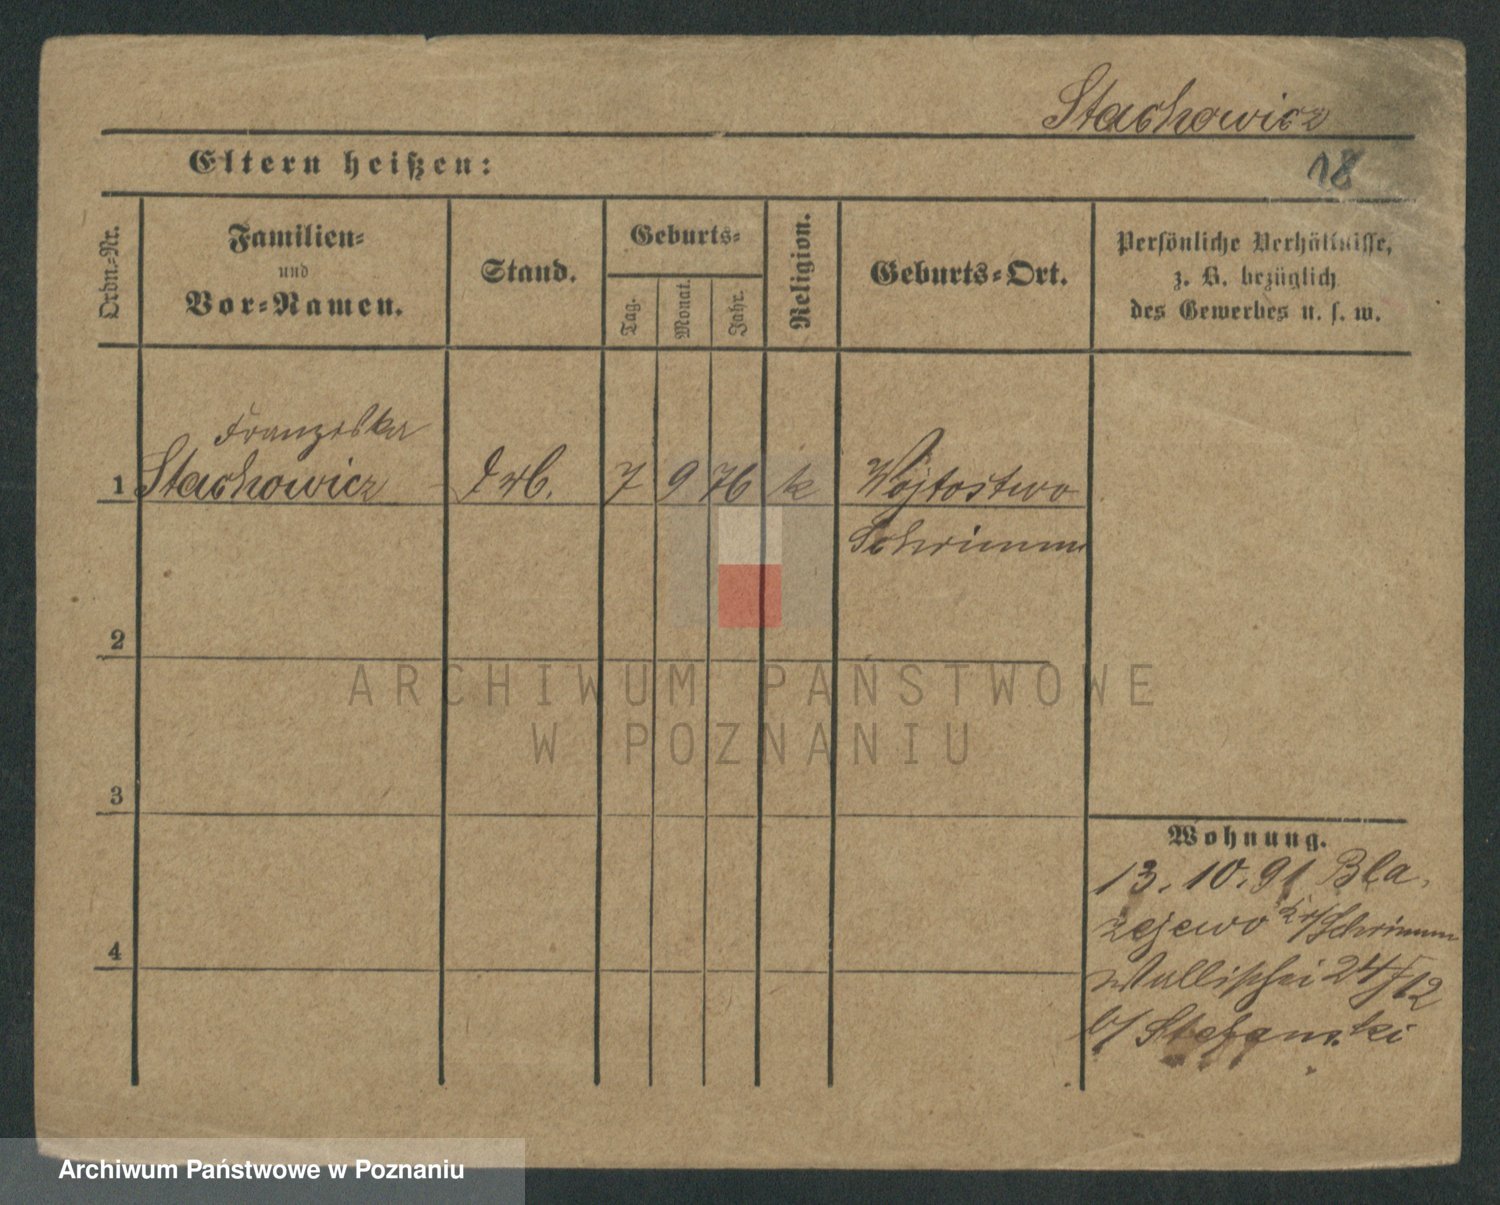 Stachowicz
Eltern heißen:
18
Ordn.-Nr.
Familien-
und
Vor-Namen.
Stand.
Geburts-
Tag.
Monat.
Jahr.
Religion.
Geburts-Ort.
Persönliche Verhältnisse,
z. B. bezüglich
des Gewerbes u. s. w.
Franziska
1 Stachowicz
7 9 76 k Wojtostwo
Schrimm
2
ARCHIWUM PAŃSTWOWE
W POZNANIU
3
Wohnung.
13. 10. 91 Bla-
zejewo Kr/Schrimm
Wallischei 24/12
b/ Stefanski
4
Archiwum Państwowe w Poznaniu